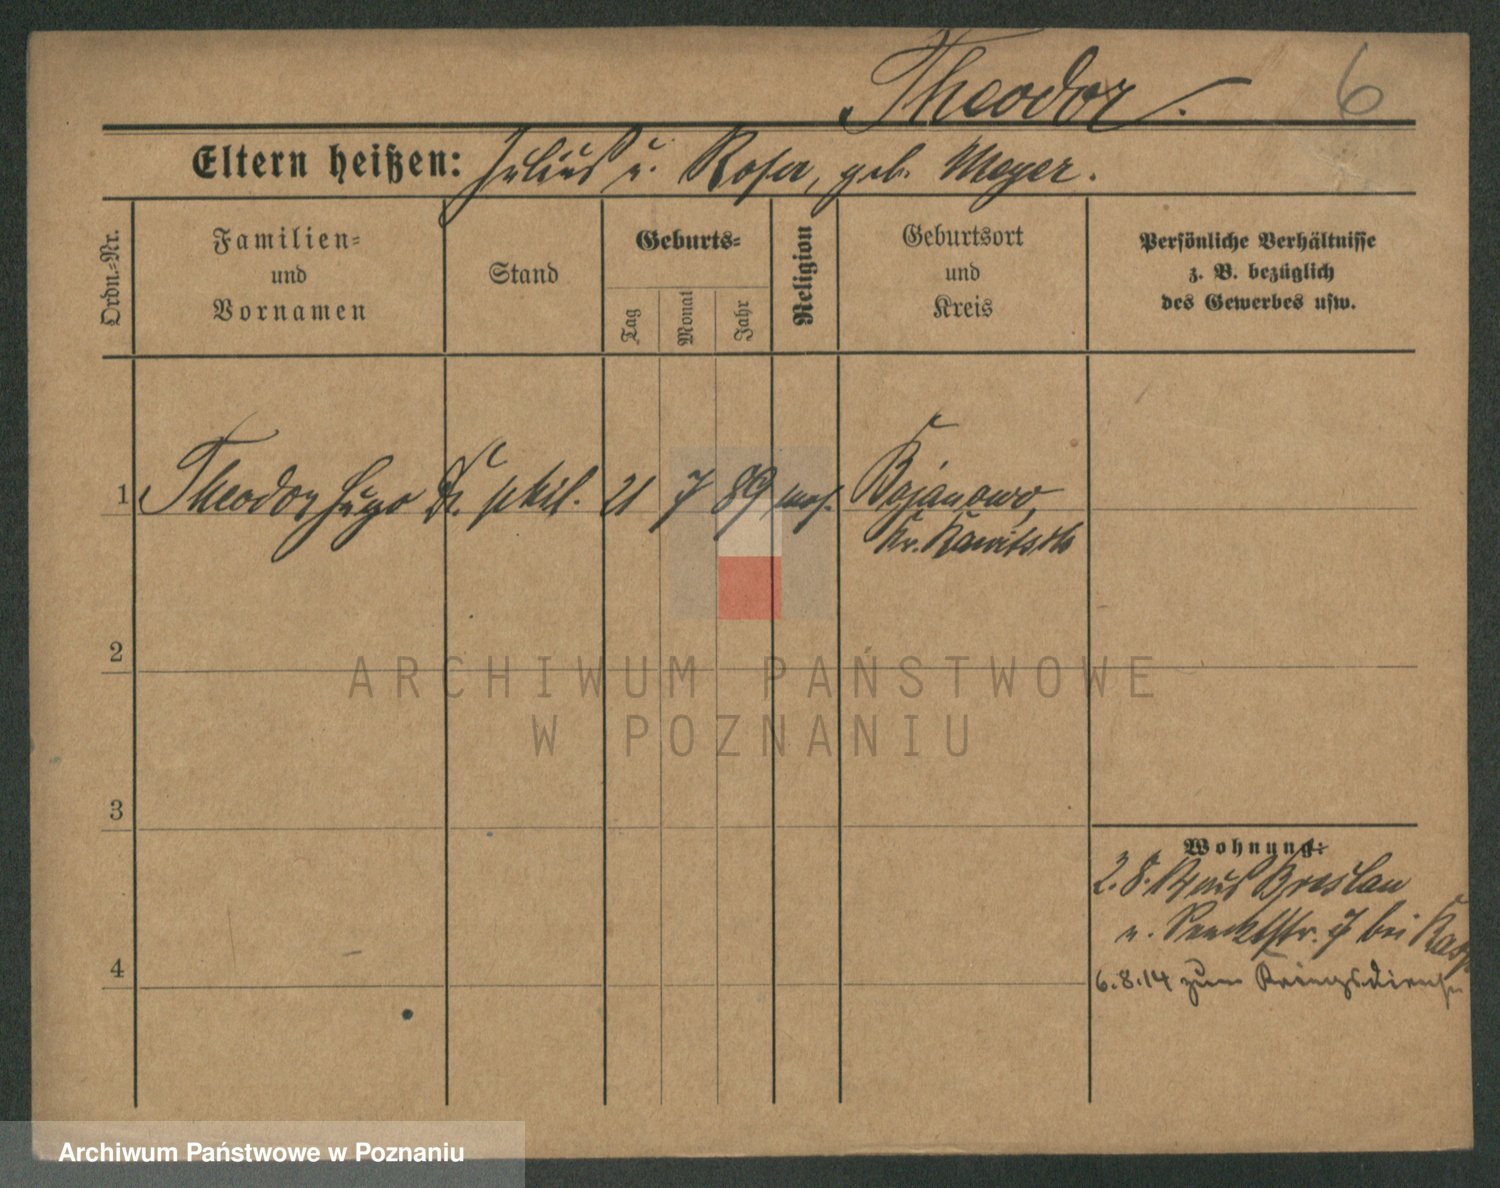 Theodor.
6
Eltern heißen: Julius u. Rosa, geb. Meyer.
Ordn.-Nr.
Familien-
und
Vornamen
Stand
Geburts-
Tag
Monat
Jahr
Religion
Geburtsort
und
Kreis
Persönliche Verhältnisse
z. B. bezüglich
des Gewerbes usw.
1 Theodor Hugo Dr. phil. 21 7 89 mos. Bojanowo,
Kr. Rawitsch
2
ARCHIWUM PAŃSTWOWE
W POZNANIU
3
Wohnung:
2. 8. 14 aus Breslau
n. 7 bei
4
6.8.14 zum Kriegsdienst
Archiwum Państwowe w Poznaniu